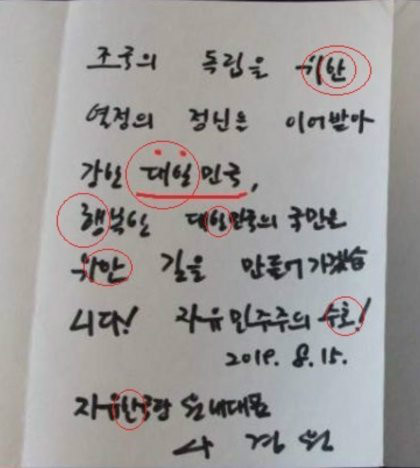 조국의 독립을 위한
열정의 정신을 이어받아
강한 대일민국,
행복한 대한민국의 국민을
위한 길을 만들어 가겠습
니다! 자유민주주의 수호!
2019. 8. 15.
자유한국당 원내대표
나 경 원